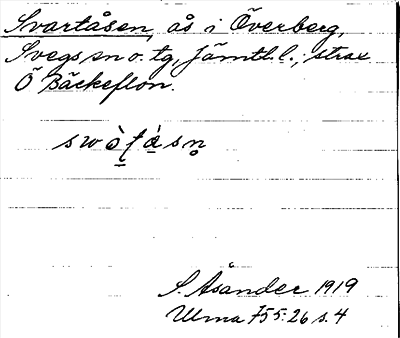 Svartåsen, ås i Överberg,
Svegs sn o. tg, Jämtl. l.; strax
Ö Bäckeflon.
S. Åsander 1919
Ulma 755:26 s. 4